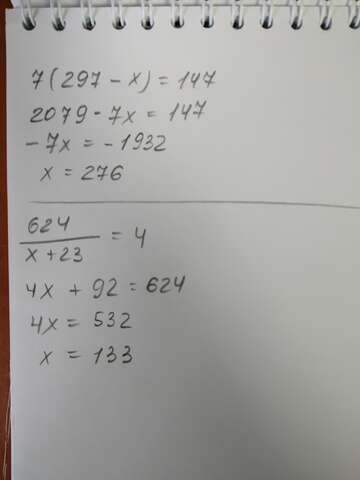 7(297 - x) = 147
2079 - 7x = 147
-7x = -1932
x = 276
624/(x+23) = 4
4x + 92 = 624
4x = 532
x = 133